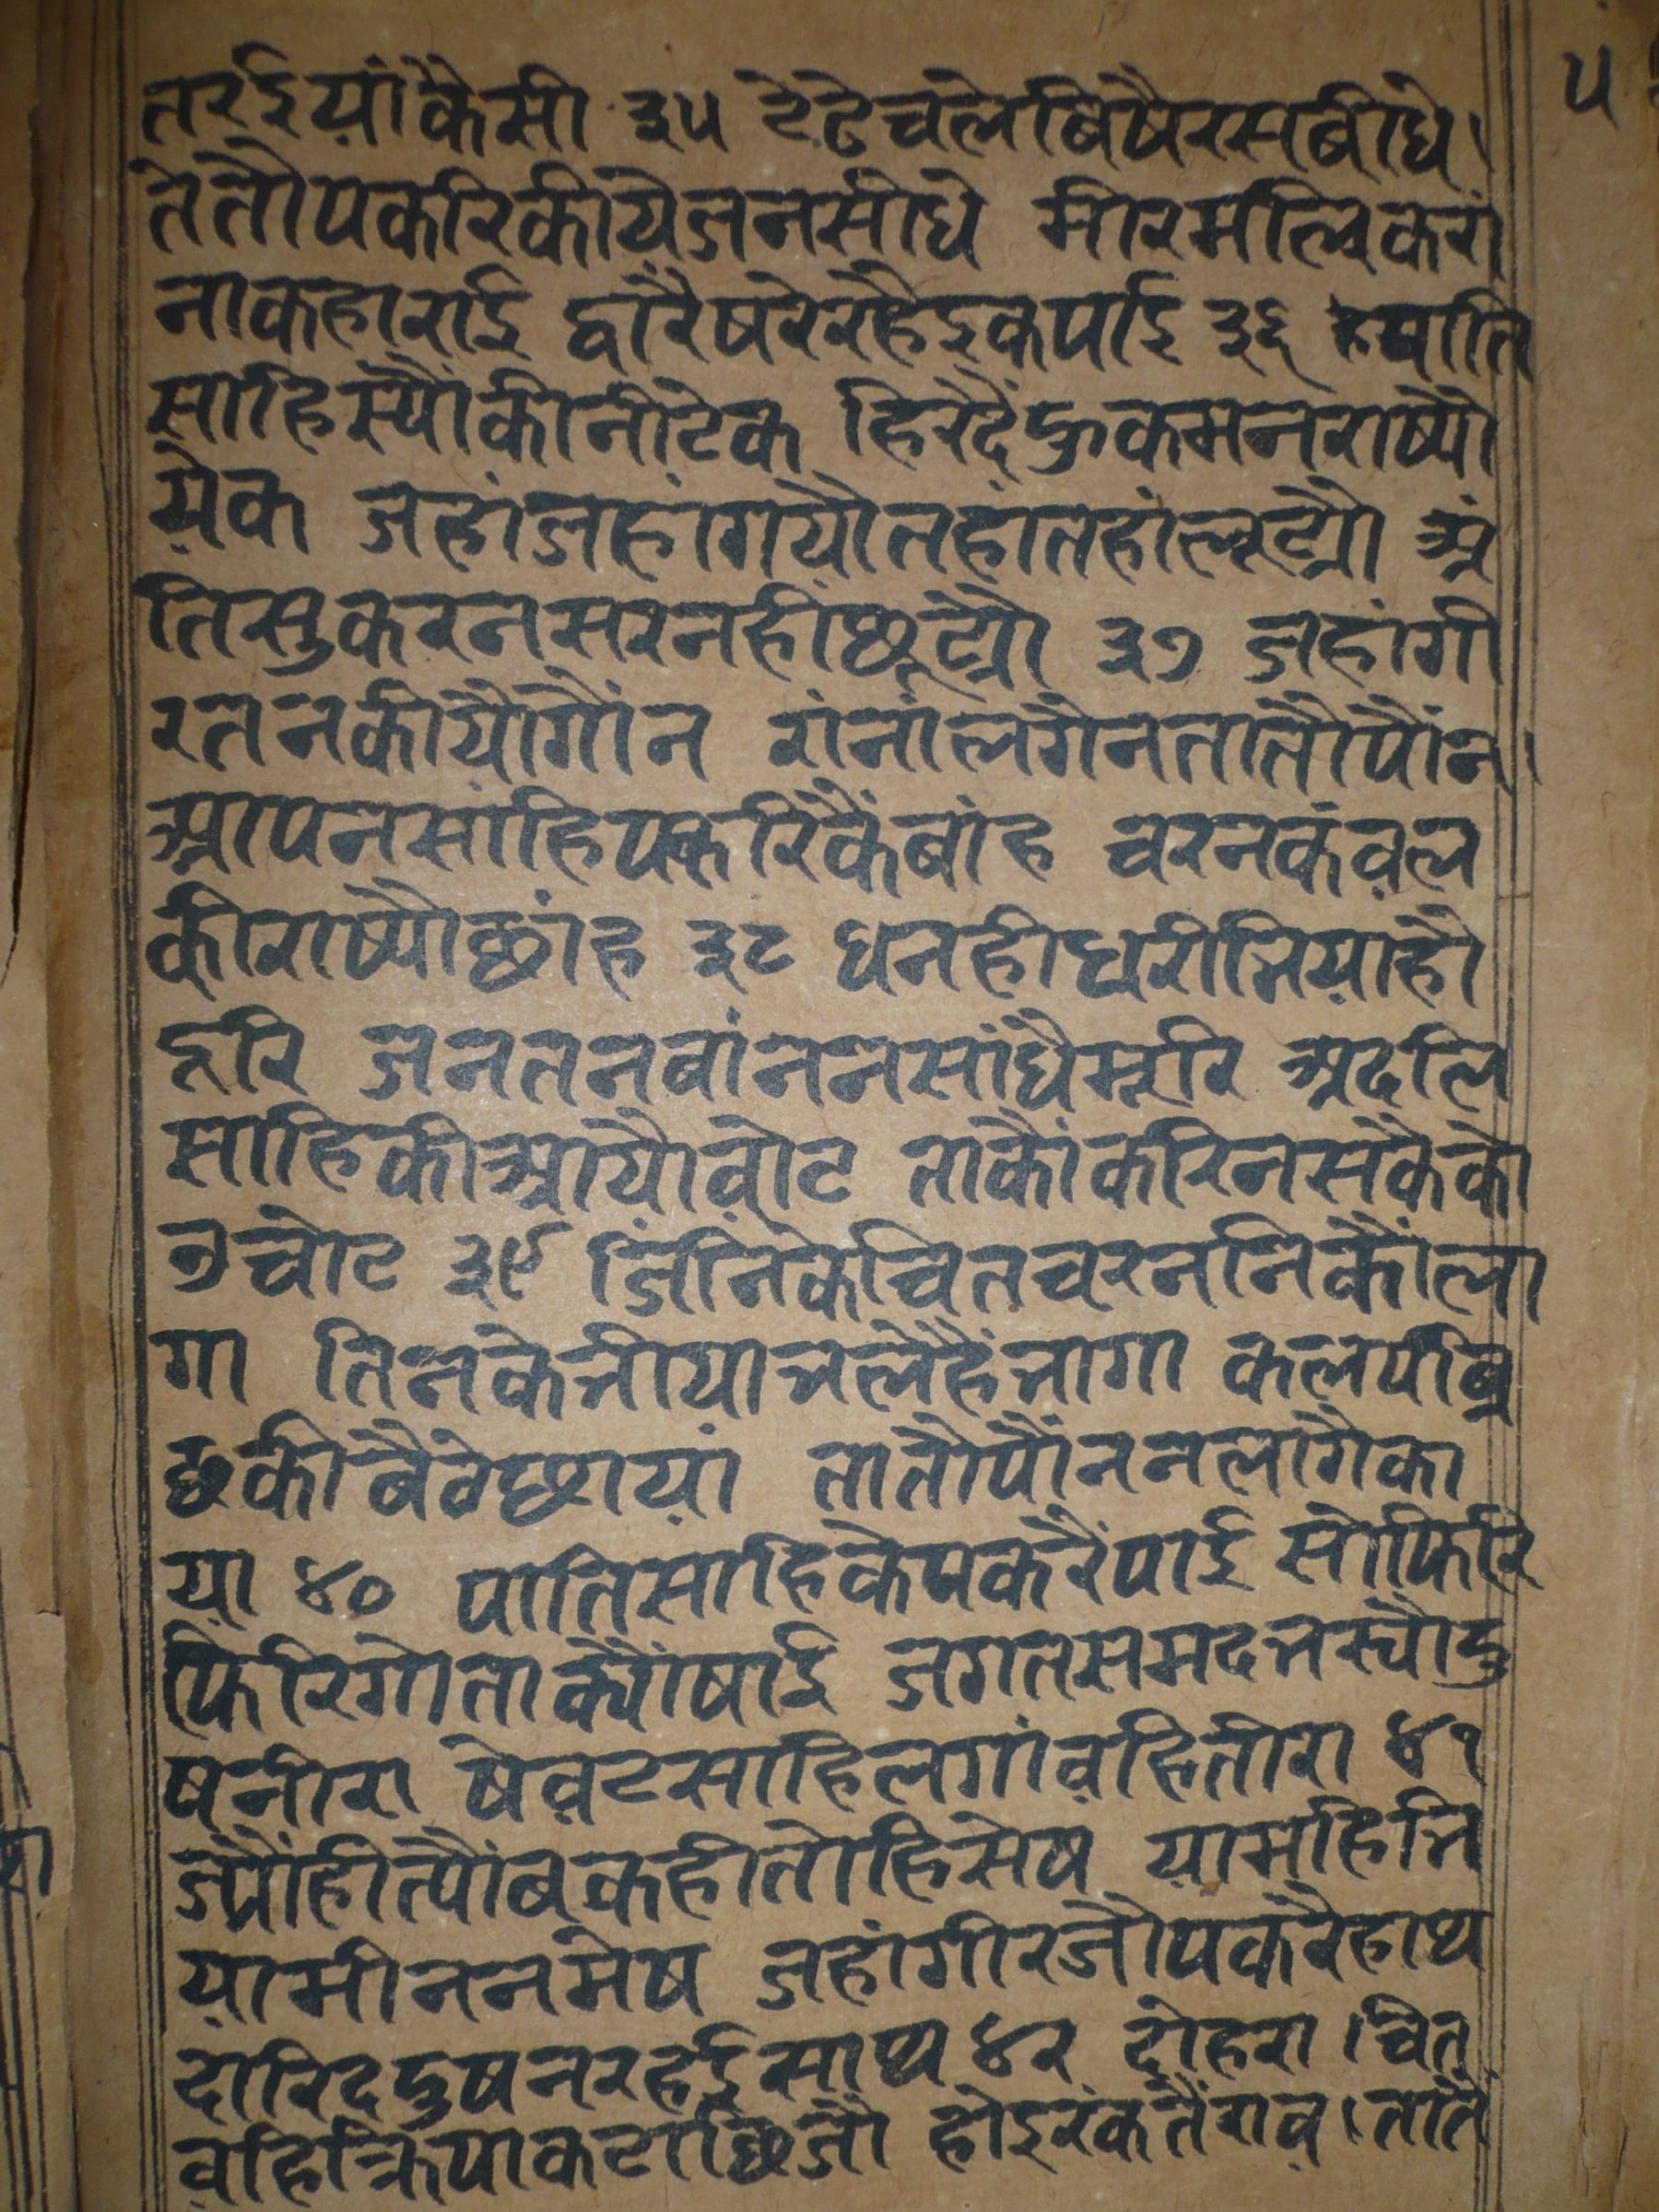 ५
तरईयांकैसी ३५ टेढेचलेबिषैरसबीधे।
तेतौपकरिकीयेजनसीधे मीरमलिकरा
नाकहाराई द्वारैषरेरहैइकपाई ३६ पाति
साहिस्यौंकीनीटेक हिरदैंमनराष्यौ
येक जहांजहांगयौतहांतहांलूट्यौ अं
तिसुकरनसरनहीछूट्यौ ३७ जहांगी
रतनकीयौगौंन रांनांलगैनतातौपौंन।
आपनसांहिपकरिकैंबांह चरनकंवल
कीराष्यौछांह ३८ धनहीधरीभियाहौ
दूरि जनतनवांननसांधैमूरि अदलि
साहिकीआयौवोट ताकौंकरिनसकैको
ऊचोट ३९ जिंनिकेचितचरननिकौंला
गा तिनकेभीयाभलेहैंभागा कलपब्रि
छकीबैठेछायां तातौपौंननलागैका
या ४० पातिसाहिकेपकरैंपाई सोफिरि
फिरिगोताक्यौंषाई जगतसमदभस्यौदु
षनीरा षेवटसाहिलगांवहितीरा ४१
ज्यौंहीत्यौंबकहीतोहिसेष यामहिभि
यामीननमेष जहांगीरजौपकरैहाथ
दारिददुषनरहईसाथ ४२ दोहरा।चित
वहिक्रिपाकटाछिजौ होइरंकतैंराव।तातैं